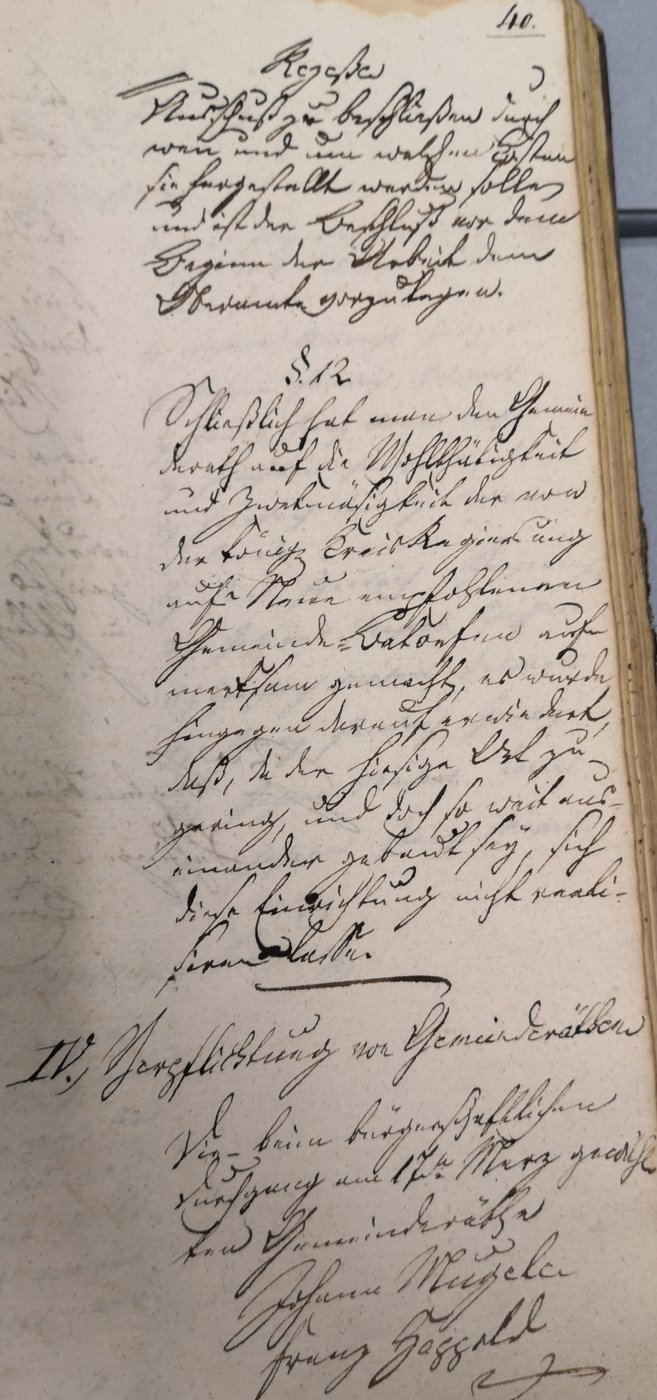 40.
Rezesse
Ausschuß zu beschließen durch
wen und um welchen Kosten
sie hergestellt werden sollen
und ist der Beschluß vor dem
Beginn der Arbeit dem
Oberamte vorzulegen.
§. 12
Schließlich hat man den Gemein
derath auf die Wohlthätigkeit
und Zwekmäsigkeit der von
der königl. Creis Regierung
aufs Neue empfohlenen
Gemeinde-Baköefen auf
merksam gemacht, es wurde
hingegen darauf erwiedert,
daß, da der hiesige Ort zu
gering, und doch so weit aus-
einander gebaut sey, sich
diese Einrichtung nicht reali-
siren lasse.
IV.) Verpflichtung von Gemeinderäthen
Die - beim bürgerschaftlichen
Durchgang am 17ten Merz gewähl
ten Gemeinderäthe
Johann Mugele
Franz Happold